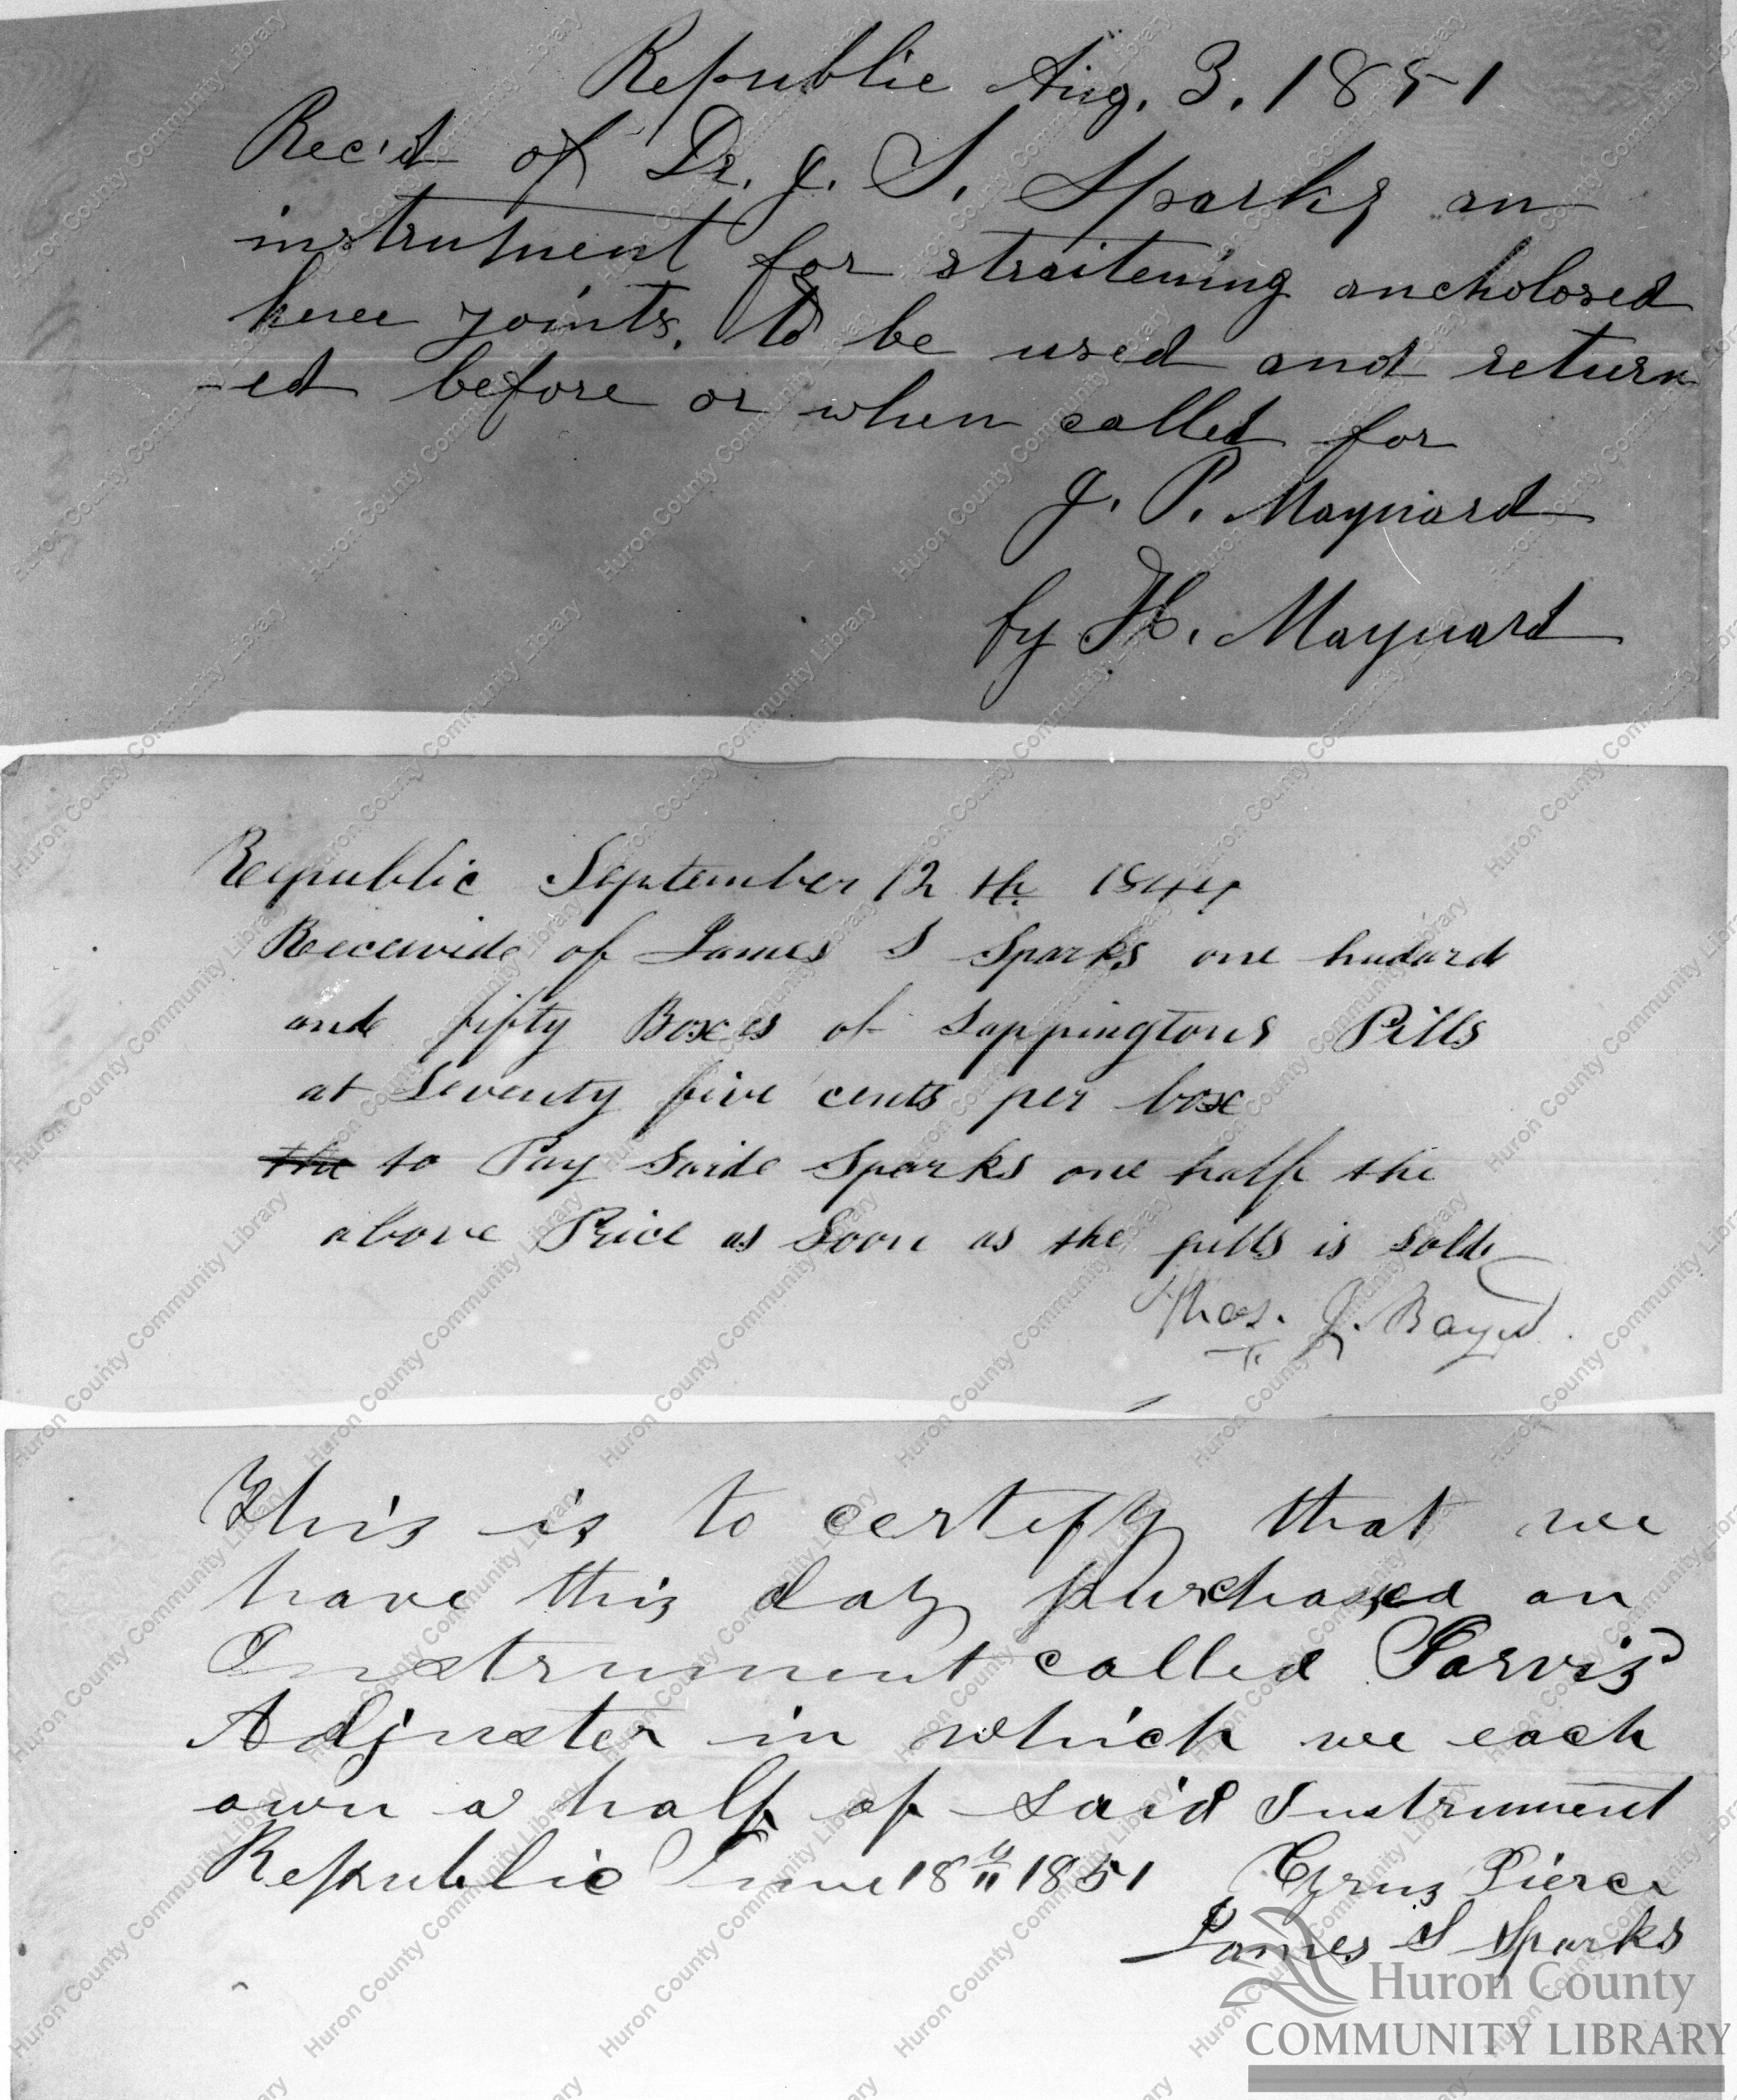 Republic Aug. 3. 1851
Rec'd of Dr. J. S. Sparks an
instrument for straitening ancholosed
knee joints. to be used and return
-ed before or when called for
J. P. Maynard
by H. Maynard
Republic September 12 th 1844
Receevide of James S Sparks one hudard
ande fifty Boxes of Sappingtons Pills
at Seventy five cents per box
the to Pay Saide Sparks one half the
above Price as Soon as the pills is Solde
Thos. J. Boyd
This is to certify that we
have this day purchased an
Instrument called Jarvis
Adjuster in which we each
own a half of said Instrument
Republic June 18th 1851 Cyrus Pierce
James S Sparks
Huron County
COMMUNITY LIBRARY